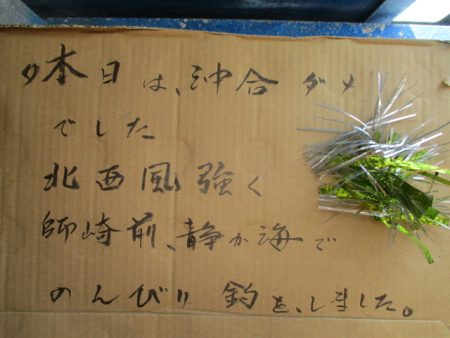 〃本日は、沖合ダメ
でした
北西風強く
師崎前、静か海で
のんびり釣を、しました。